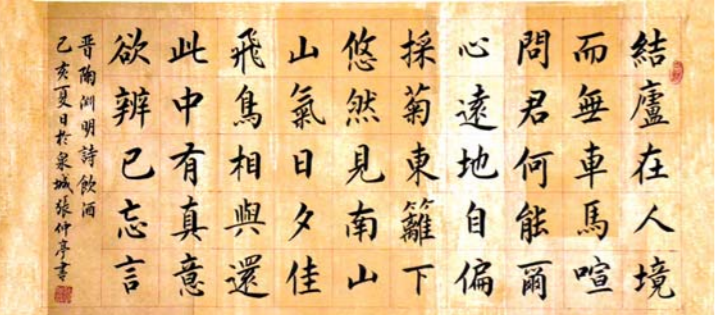 結廬在人境
而無車馬喧
問君何能爾
心遠地自偏
採菊東籬下
悠然見南山
山氣日夕佳
飛鳥相與還
此中有真意
欲辨已忘言
晋陶渊明詩飲酒
己亥夏日於泉城張仲亭書